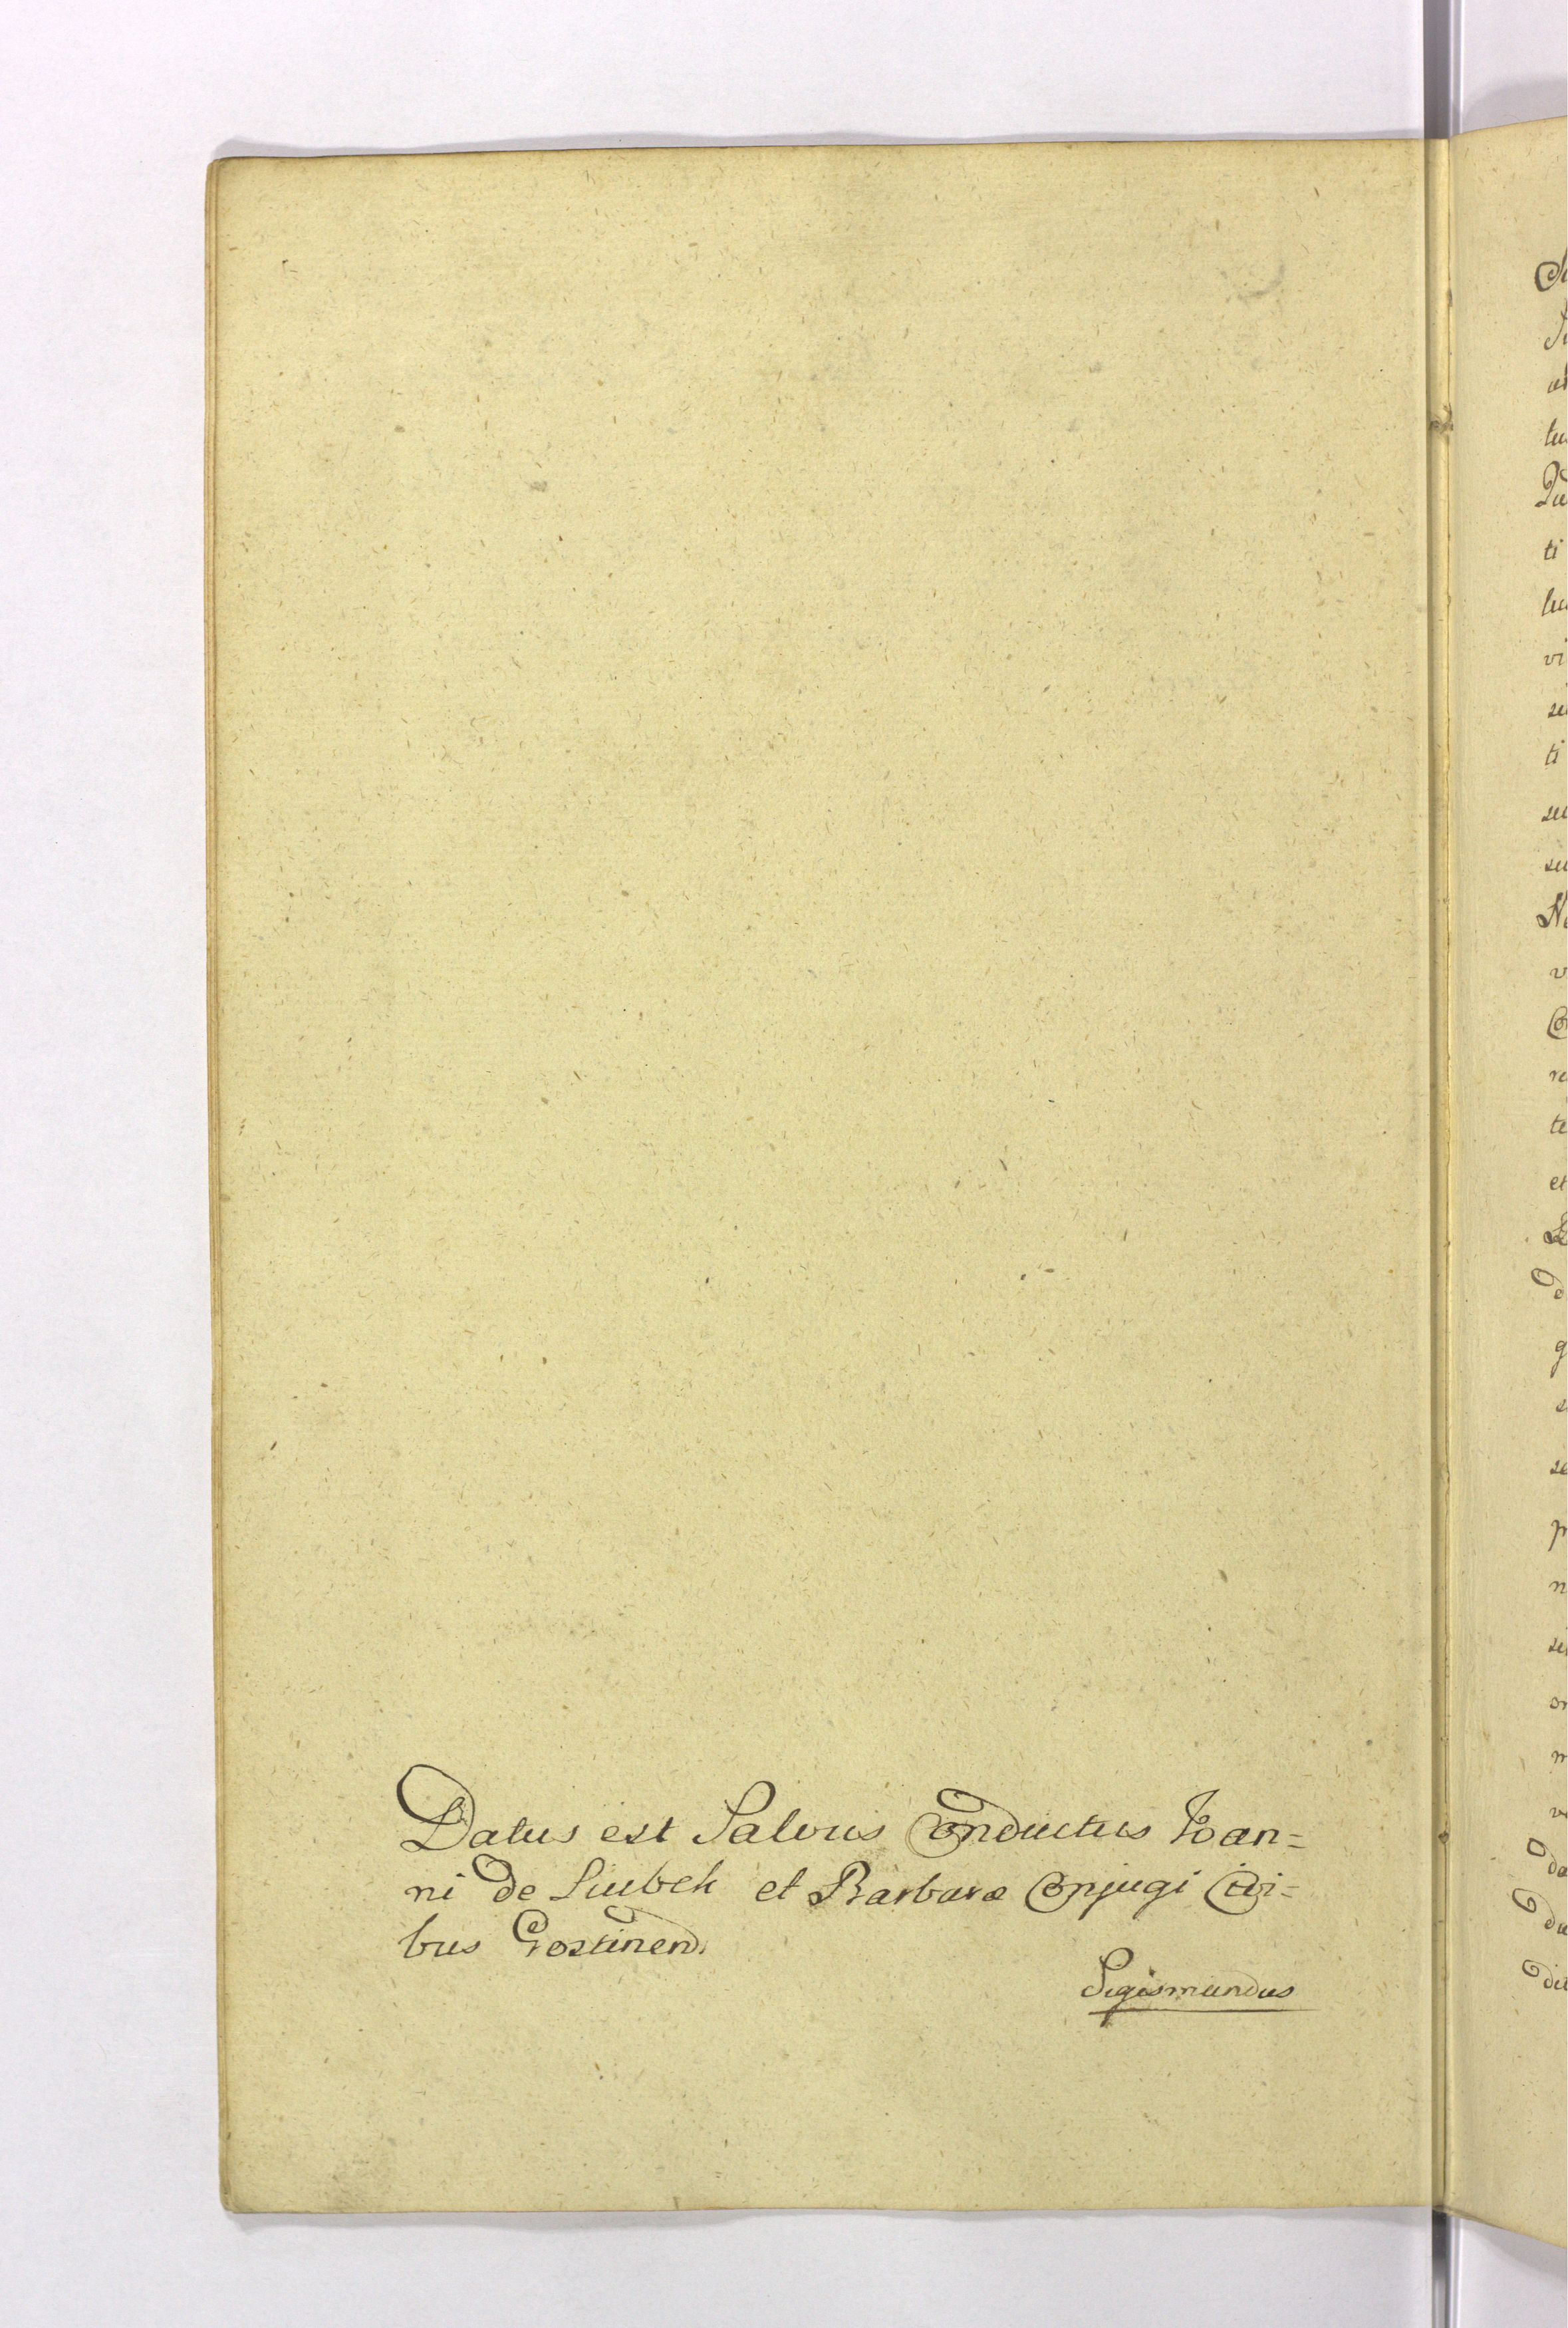 Datus est Salvus Conductus Joan=
ni de Liubek et Barbaræ Conjugi Civi=
bus Gostinen.
Sigismundus